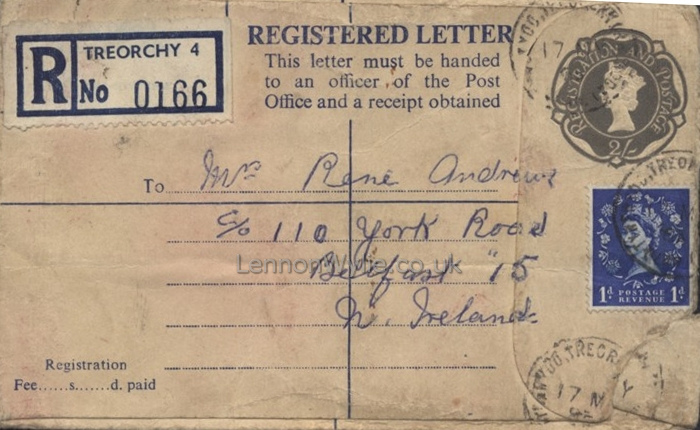 R TREORCHY 4
No 0166
REGISTERED LETTER
This letter must be handed
to an officer of the Post
Office and a receipt obtained
REGISTRATION AND POSTAGE
2/-
To Mrs René Andrews
c/o 110 York Road
Belfast 15
N. Ireland
LennonWylie.co.uk
1d. POSTAGE 1d.
REVENUE
17
TREORCHY
17 M Y
Registration
Fee......s.......d. paid